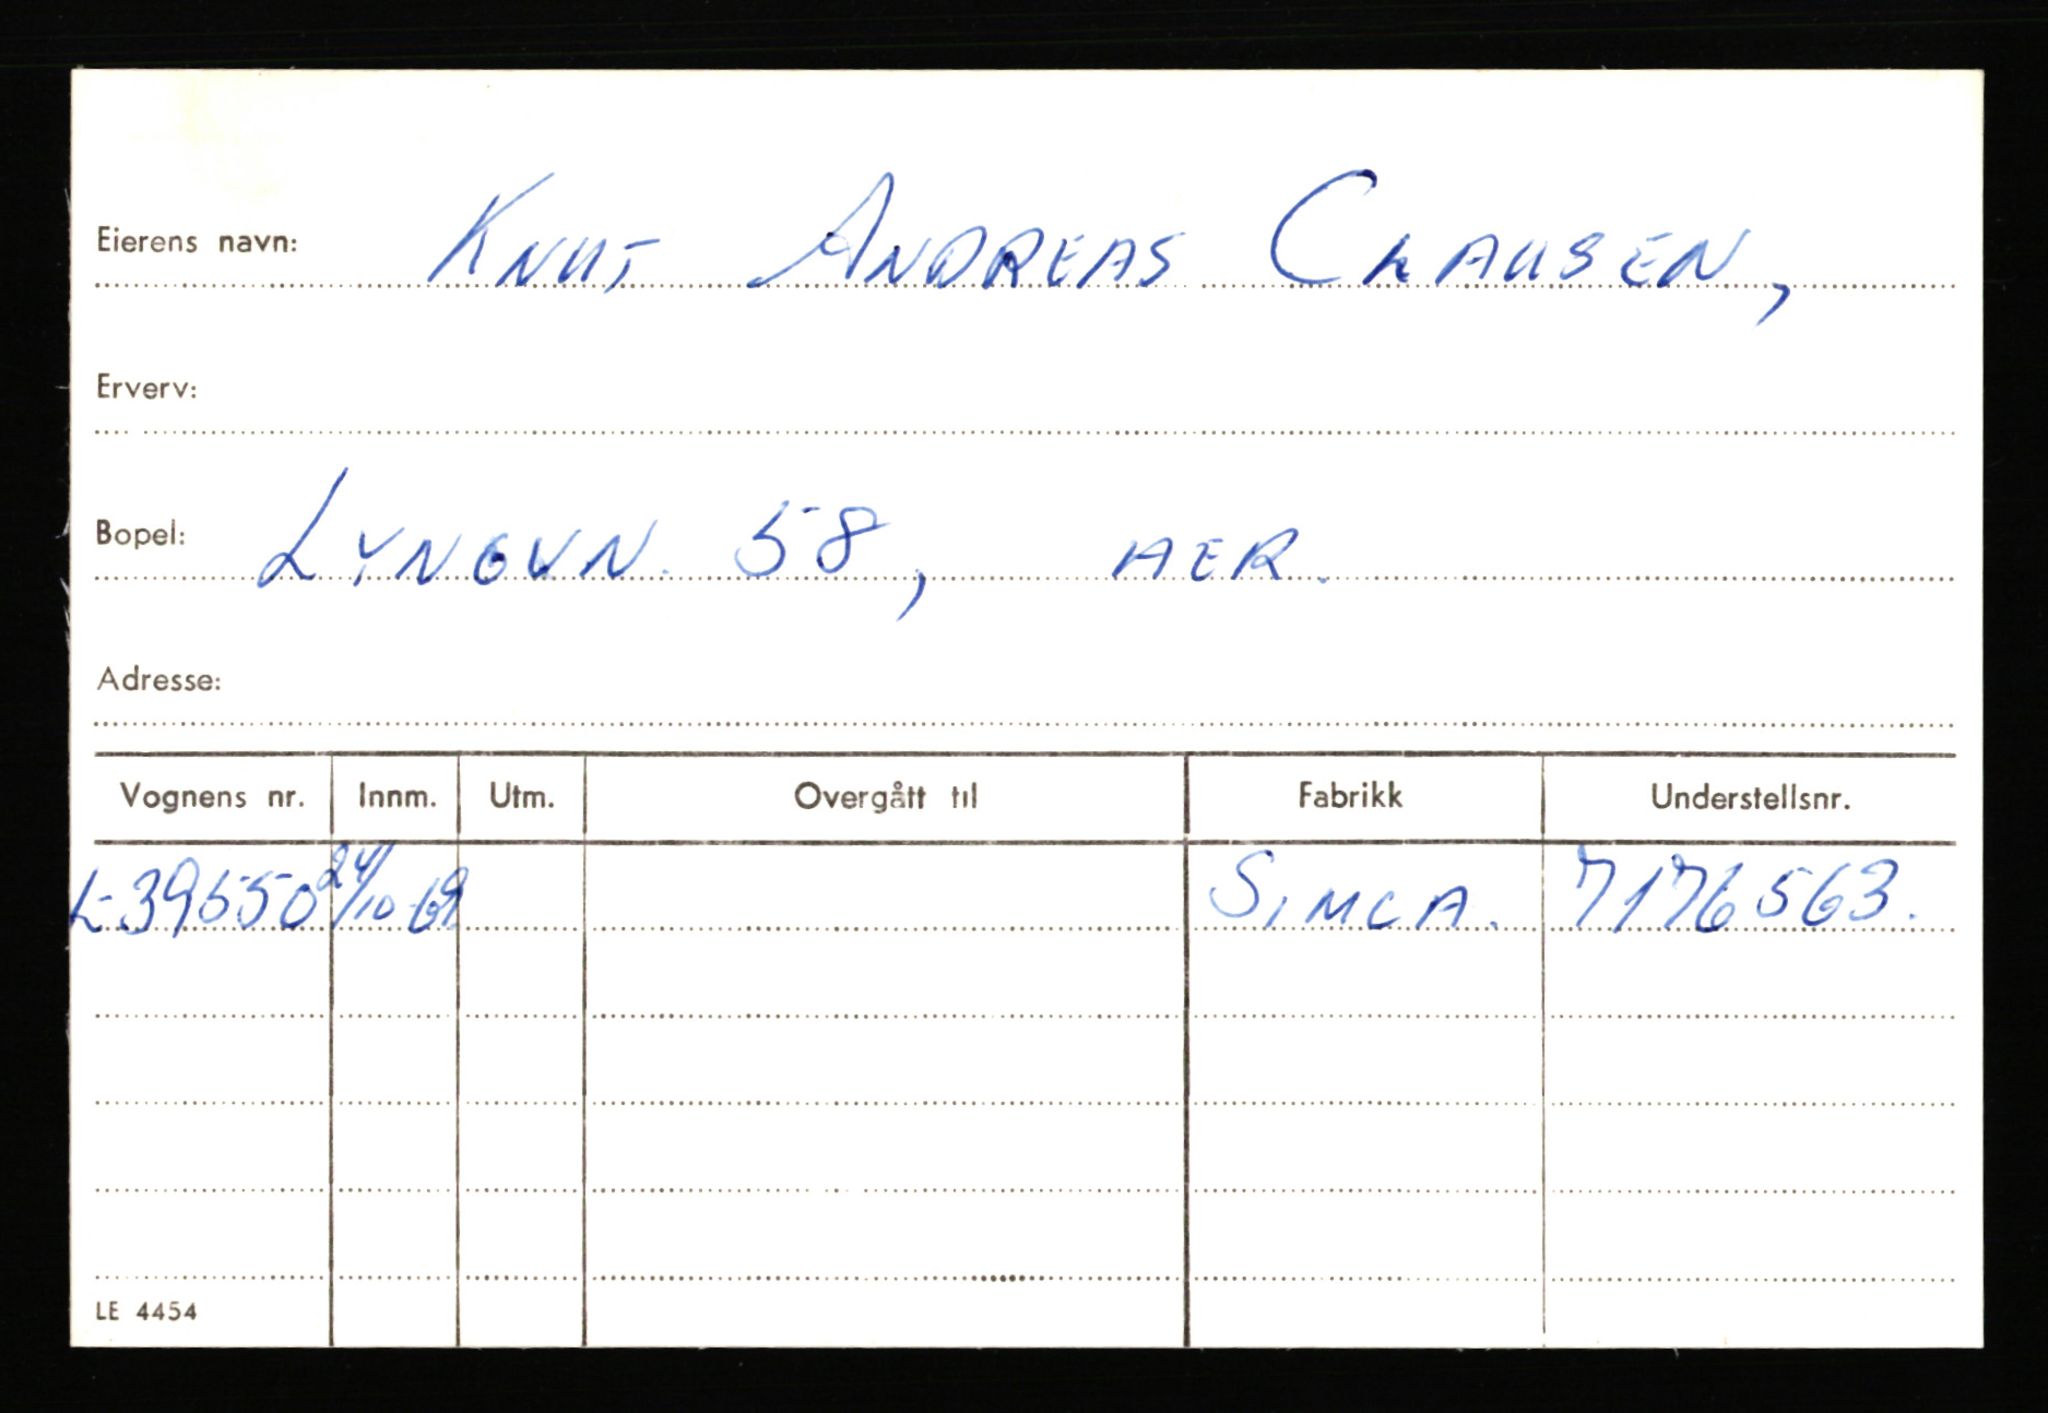 Eierens navn: KNUT ANDREAS CLAUSEN,
Erverv:
Bopel: LYNGVN. 58, HER.
Adresse:
Vognens nr. Innm. Utm. Overgått til Fabrikk Understellsnr.
L-39550 24/10-69 SIMCA. 7176563.
LE 4454